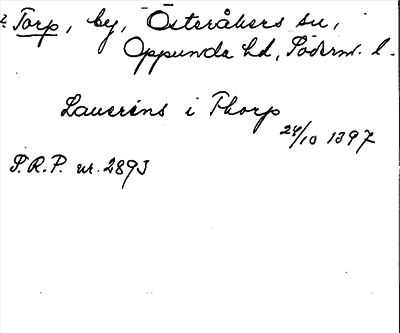 Torp, by, Österåkers sn,
Oppunda hd, Söderm. l.
Laurens i Thorp
24/10 1397
S.R.P. nr. 2893